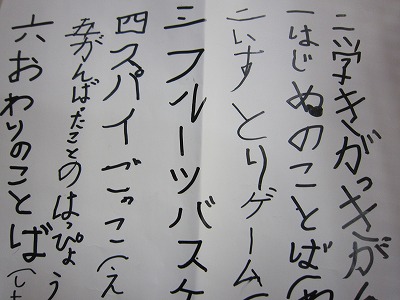 二学きがっきがん
一はじめのことば(め
二いすとりゲーム(
三フルーツバスケ
四スパイごっこ(え
五がんばたことのはっぴょう
六おわりのことば(した